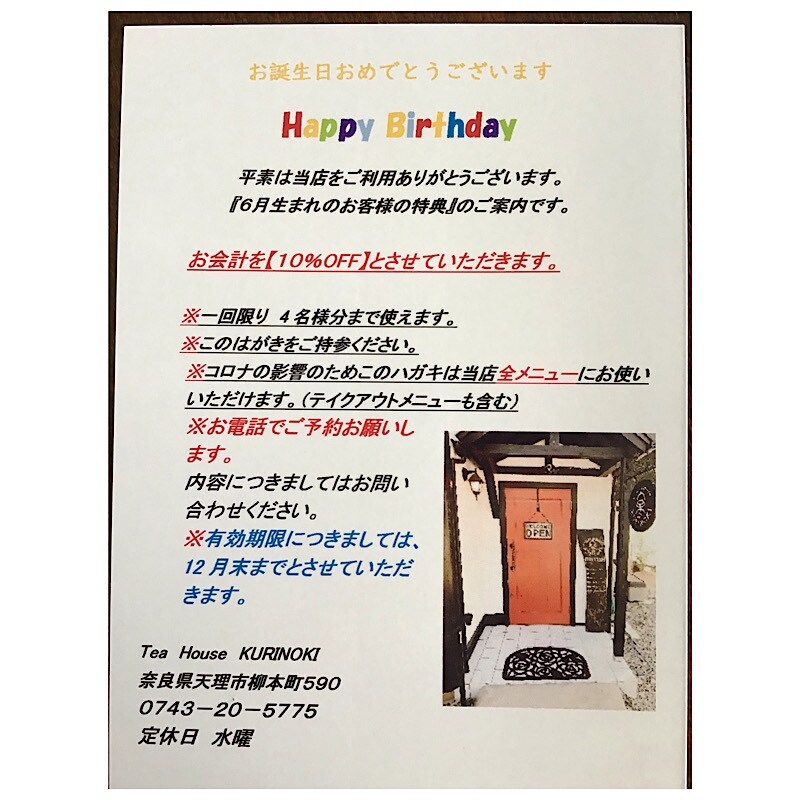 お誕生日おめでとうございます
Happy Birthday
平素は当店をご利用ありがとうございます。
『６月生まれのお客様の特典』のご案内です。
お会計を【１０％OFF】とさせていただきます。
※一回限り ４名様分まで使えます。
※このはがきをご持参ください。
※コロナの影響のためこのハガキは当店全メニューにお使い
いただけます。（テイクアウトメニューも含む）
※お電話でご予約お願いし
ます。
内容につきましてはお問い
合わせください。
※有効期限につきましては、
12月末までとさせていただ
きます。
WELCOME
OPEN
Tea House KURINOKI
奈良県天理市柳本町590
０７４３－２０－５７７５
定休日 水曜